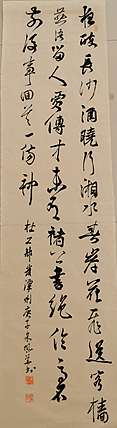 夜醉長沙酒曉行湘水春岸花飛送客檣
燕語留人賈傅才未有褚公書絕倫高名
前後事回首一傷神
杜工部發潭州庚子